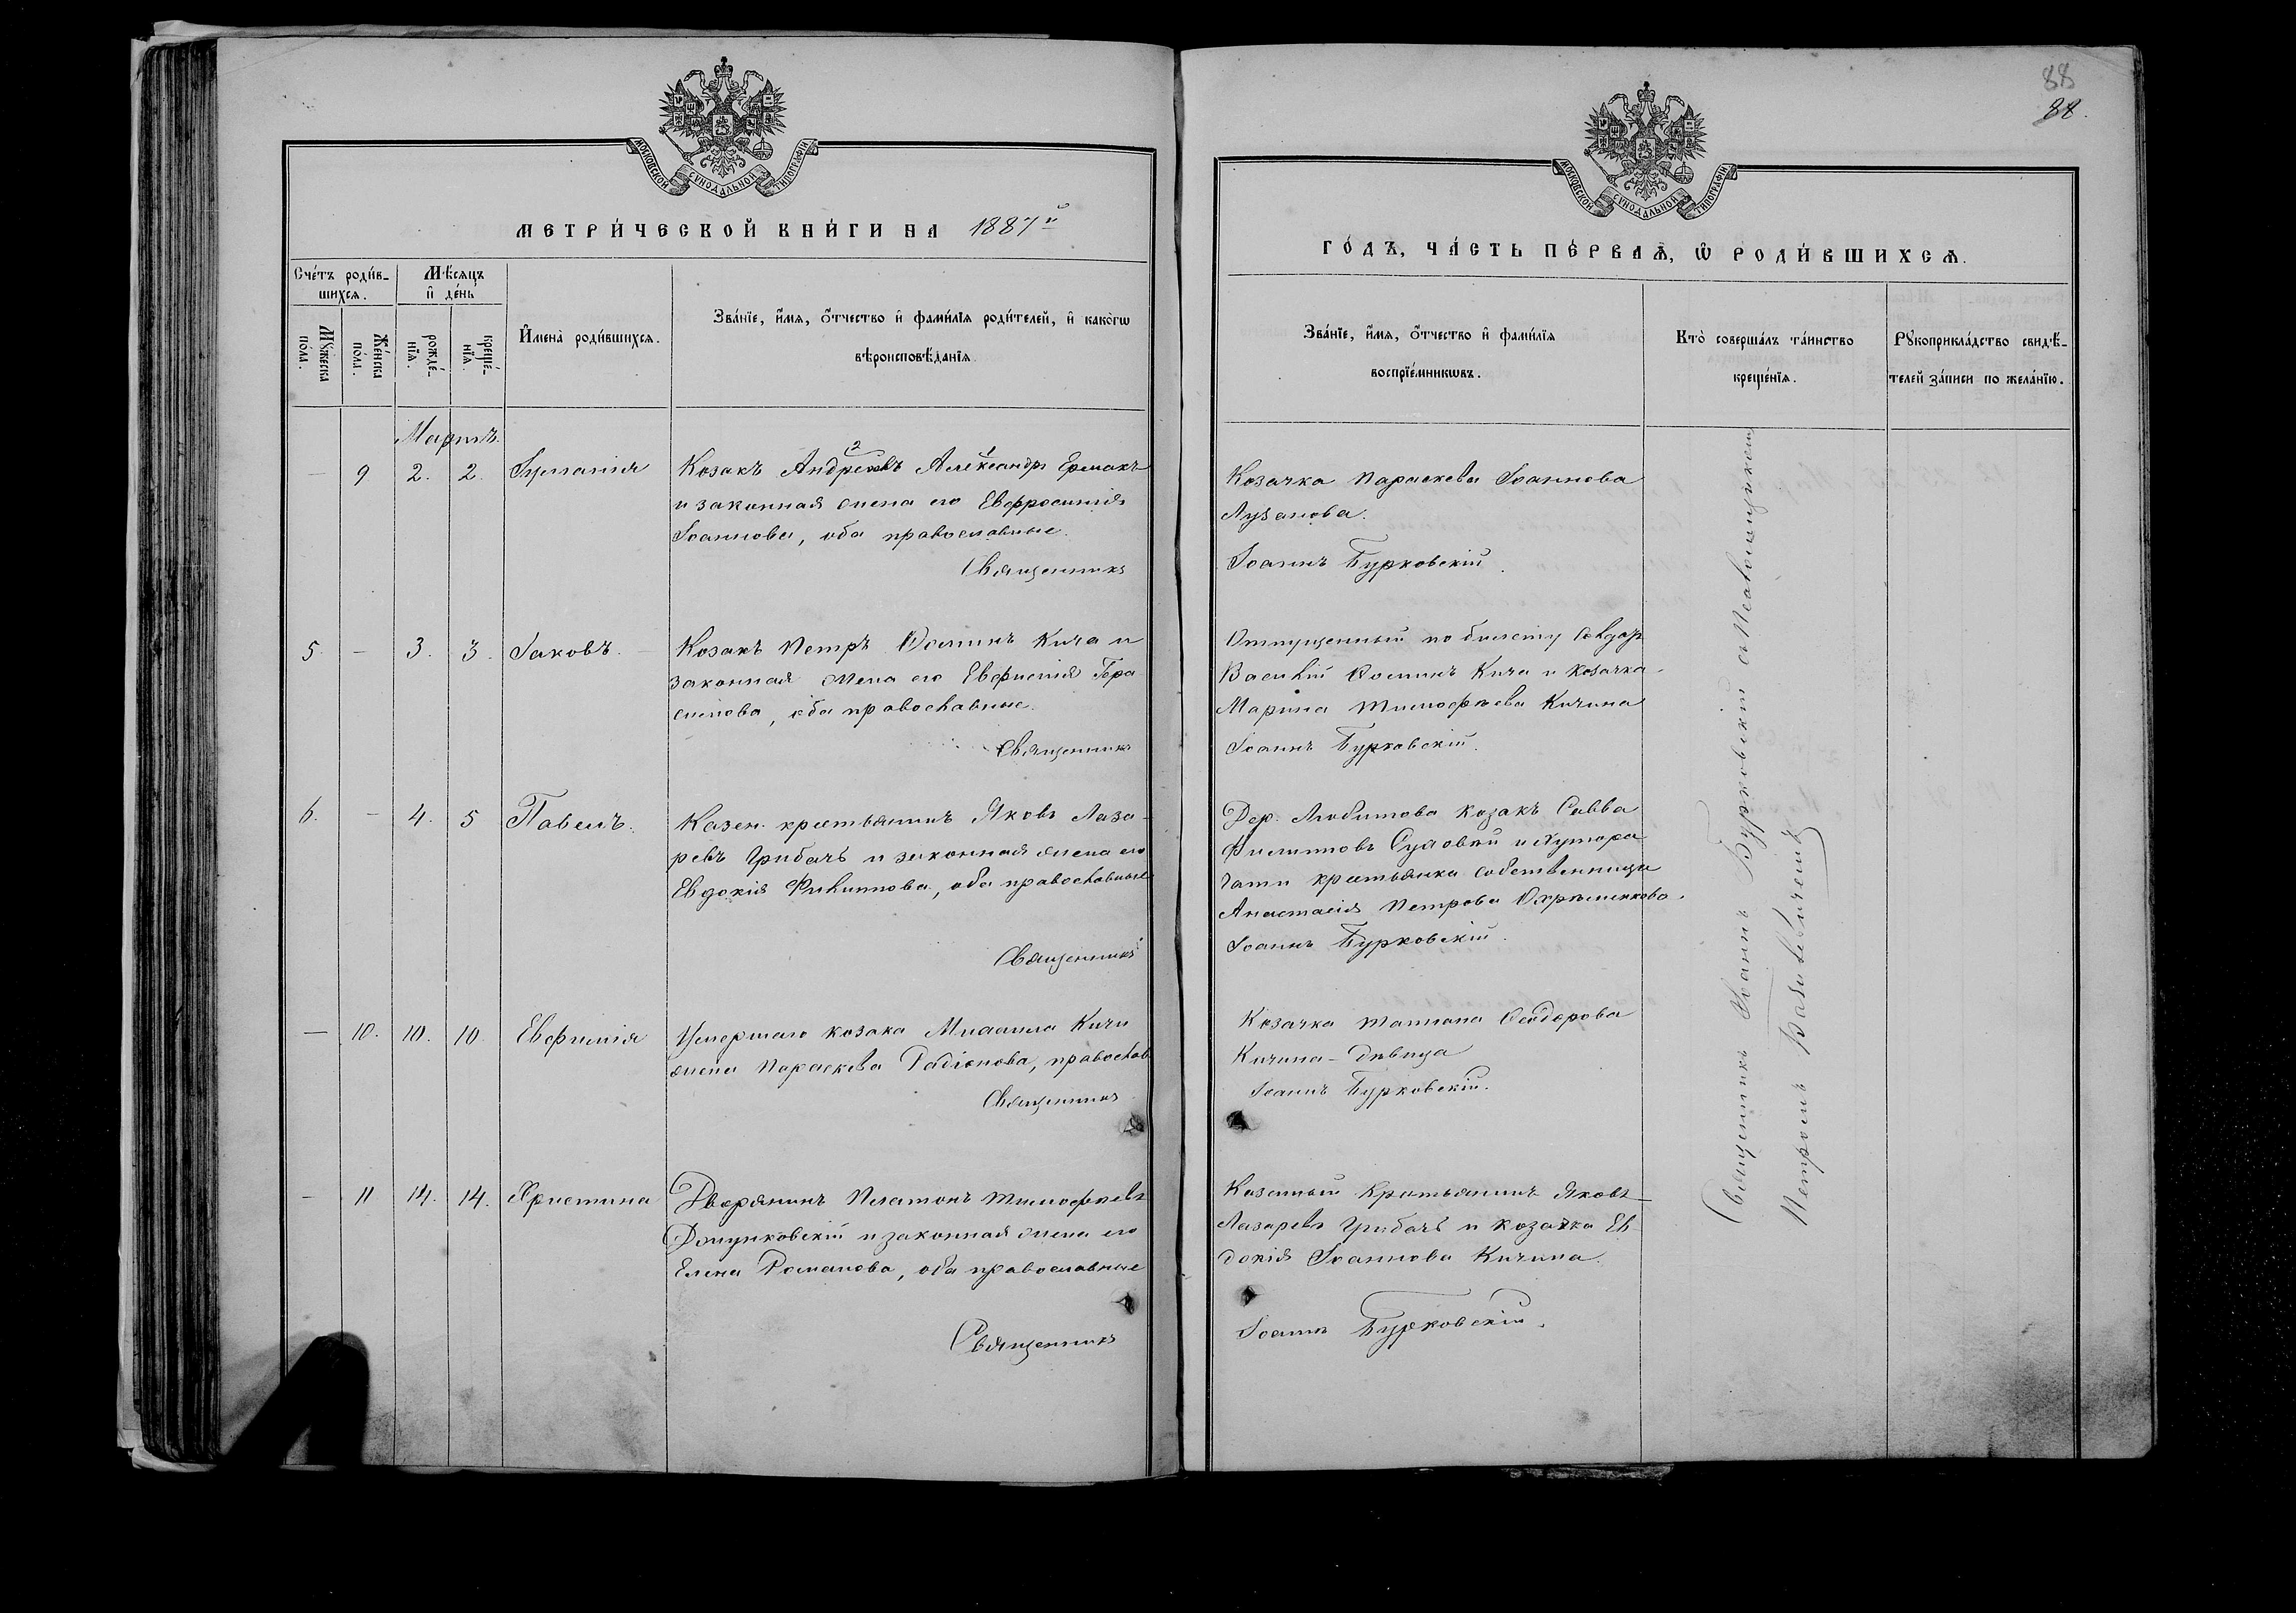 88
88.
МОСКОВСКОЙ СѴНОДАЛЬНОЙ ТИПОГРАФІИ
МЕТРИ́ЧЕСКОЙ КНИ́ГИ НА 1887й
Сче́тъ роди́в-
шихся.
Мѣ́сяцъ
и҆ де́нь
Мꙋ́жеска
по́ла.
Же́нска
по́ла.
рожде́-
нїѧ.
креще́-
нїѧ.
И҆мена̀ роди́вшихсѧ.
Зва́нїе, и҆́мѧ, ѻ҆́тчество и҆ фами́лїѧ роди́телей, и҆ како́гѡ
вѣроисповѣ́данїѧ.
Мартъ.
— 9 2. 2. Ирпанія
Козакъ Андреевъ 2 Александръ 1 Ермакъ
и законная жена его Евфросинія
Іоаннова, оба православные.
Священникъ
5. — 3. 3. Іаковъ.
Козакъ Петръ Ѳоминъ Кича и
законная жена его Евфимія Гера
симова, оба православные.
Священникъ
6. — 4. 5 Павелъ.
Казен. крестьянинъ Яковъ Лаза-
ревъ Грибачъ и законная жена его
Евдокія Филиппова, оба православные
Священникъ
— 10. 10. 10 Евфимія
Умершаго козака Михаила Кичи
жена Параскева Радіонова, православ
Священникъ
— 11 14. 14. Христина
Дворянинъ Платонъ Тимофѣевъ
и законная жена его
Елена Романова, оба православные
Священникъ
МОСКОВСКОЙ СѴНОДАЛЬНОЙ ТИПОГРАФІИ
ГО́ДЪ, ЧА́СТЬ ПЕ́РВАѦ, Ѡ҆ РОДИ́ВШИХСѦ.
Зва́нїе, и҆́мѧ, ѻ҆́тчество и҆ фами́лїѧ
воспрїе́мникѡвъ.
Кто̀ соверша́лъ та́инство
креще́нїѧ.
Рꙋкоприкла́дство свидѣ́-
телей за́писи по жела́нїю.
Козачка Параскева Іоаннова
Лузанова.
Іоаннъ Бурковскій.
Отпущенный по билету
Василій Ѳоминъ Кича и козачка
Марина Тимофѣева Кичина
Іоаннъ Бурковскій.
Дер. Любитова козакъ Савва
Филипповъ и хутора
крестьянка собственница
Анастасія Петрова
Іоаннъ Бурковскій.
Козачка Татіана Ѳеодорова
Кичина – дѣвица
Іоаннъ Бурковскій.
Казенный крестьянинъ Яковъ
Лазаревъ Грибачъ и козачка Ев
докія Іоаннова Кичина.
Іоаннъ Бурковскій.
Священникъ Іоаннъ Бурковскій съ Псаломщикомъ
Петромъ Базилевичемъ